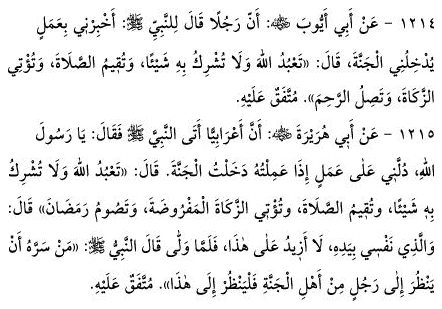 ١٢١٤ - عَنْ أَبِي أَيُّوبَ ﷺ: أَنَّ رَجُلًا قَالَ لِلنَّبِيِّ ﷺ: أَخْبِرْنِي بِعَمَلٍ
يُدْخِلُنِي الْجَنَّةَ، قَالَ: «تَعْبُدُ اللهَ وَلَا تُشْرِكُ بِهِ شَيْئًا، وَتُقِيمُ الصَّلَاةَ، وَتُؤْتِي
الزَّكَاةَ، وَتَصِلُ الرَّحِمَ». مُتَّفَقٌ عَلَيْهِ.
١٢١٥ - عَنْ أَبِي هُرَيْرَةَ ﷺ: أَنَّ أَعْرَابِيًّا أَتَى النَّبِيَّ ﷺ فَقَالَ: يَا رَسُولَ
اللهِ، دُلَّنِي عَلَى عَمَلٍ إِذَا عَمِلْتُهُ دَخَلْتُ الْجَنَّةَ. قَالَ: «تَعْبُدُ اللهَ وَلَا تُشْرِكُ
بِهِ شَيْئًا، وتُقِيمُ الصَّلَاةَ، وتُؤْتِي الزَّكَاةَ الْمَفْرُوضَةَ، وَتَصُومُ رَمَضَانَ» قَالَ:
وَالَّذِي نَفْسِي بِيَدِهِ، لَا أَزِيدُ عَلَى هٰذَا، فَلَمَّا وَلَّى قَالَ النَّبِيُّ ﷺ: «مَنْ سَرَّهُ أَنْ
يَنْظُرَ إِلَى رَجُلٍ مِنْ أَهْلِ الْجَنَّةِ فَلْيَنْظُرْ إِلَى هٰذَا». مُتَّفَقٌ عَلَيْهِ.